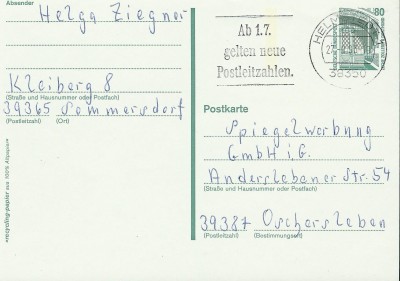 Absender
Helga Ziegner
Kleiberg 8
(Straße und Hausnummer oder Postfach)
39365 Sommersdorf
(Postleitzahl) (Ort)
»recycling-papier aus 100% Altpapier«
Ab 1.7.
gelten neue
Postleitzahlen.
38350
80
Postkarte
Spiegelwerbung
GmbH i.G.
Anderslebener Str. 54
(Straße und Hausnummer oder Postfach)
39387 Oschersleben
(Postleitzahl) (Bestimmungsort)